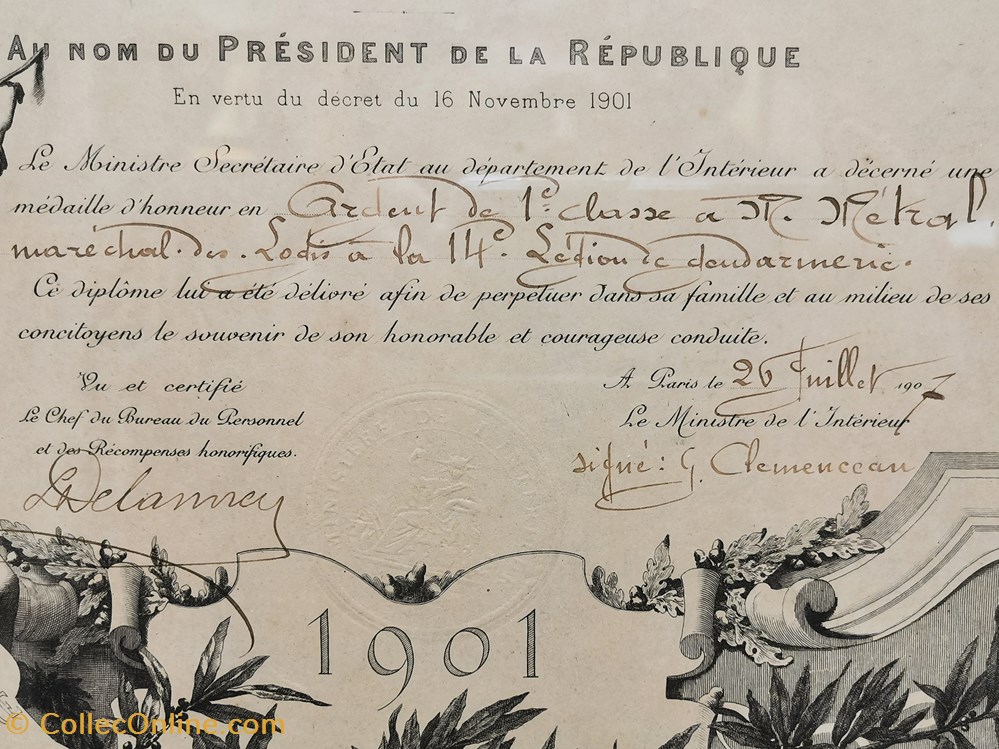 AU NOM DU PRÉSIDENT DE LA RÉPUBLIQUE
En vertu du décret du 16 Novembre 1901
Le Ministre Secrétaire d'Etat au département de l'Intérieur a décerné une
médaille d'honneur en Argent de 1e classe à M. Métral,
maréchal des Logis à la 14e Légion de gendarmerie.
Ce diplôme lui a été délivré afin de perpétuer dans sa famille et au milieu de ses
concitoyens le souvenir de son honorable et courageuse conduite.
Vu et certifié
Le Chef du Bureau du Personnel
et des Récompenses honorifiques.
A Paris le 26 Juillet 1907
Le Ministre de l'Intérieur
signé : G. Clemenceau
1901
© CollecOnline.com